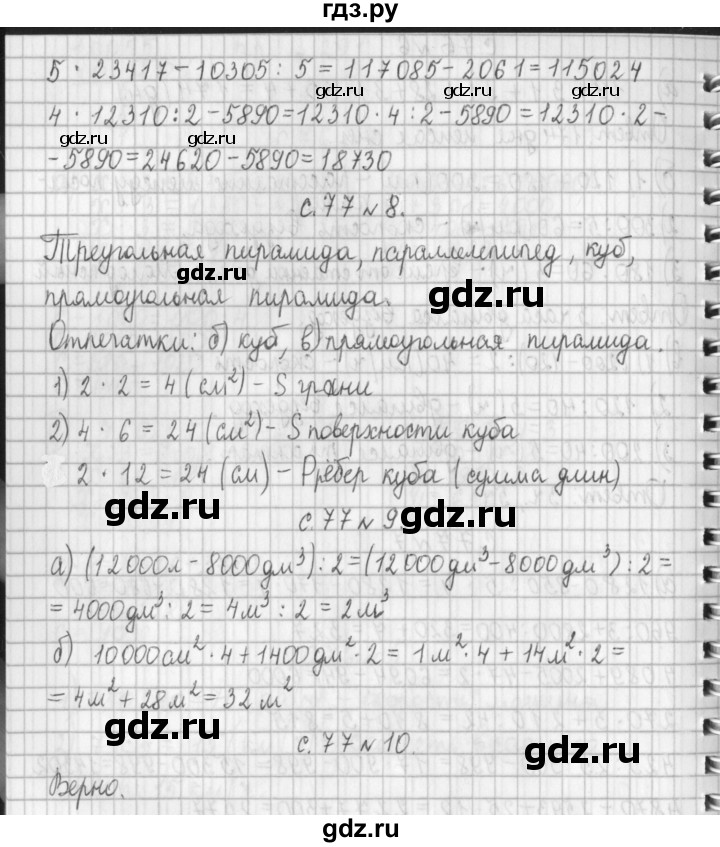 гдз.ру
5 · 23417 - 10305 : 5 = 117085 - 2061 = 115024
gdz.ru gdz.ru
4 · 12310 : 2 - 5890 = 12310 · 4 : 2 - 5890 = 12310 · 2 -
gdz.ru gdz.ru
- 5890 = 24620 - 5890 = 18730
с. 77 № 8.
Треугольная пирамида, параллелепипед, куб,
gdz.ru
прямоугольная пирамида.
gdz.ru
Отпечатки: б) куб, в) прямоугольная пирамида.
1) 2 · 2 = 4 (см²) - S грани
2) 4 · 6 = 24 (см²) - S поверхности куба
2 · 12 = 24 (см) - P рёбер куба (сумма длин)
gdz.ru gdz.ru
с. 77 № 9.
а) (12000л - 8000дм³) : 2 = (12000дм³ - 8000дм³) : 2 =
= 4000дм³ : 2 = 4м³ : 2 = 2м³
б) 10000см² · 4 + 1400дм² · 2 = 1м² · 4 + 14м² · 2 =
= 4м² + 28м² = 32 м²
gdz.ru
с. 77 № 10.
gdz.ru
Верно.
gdz.ru